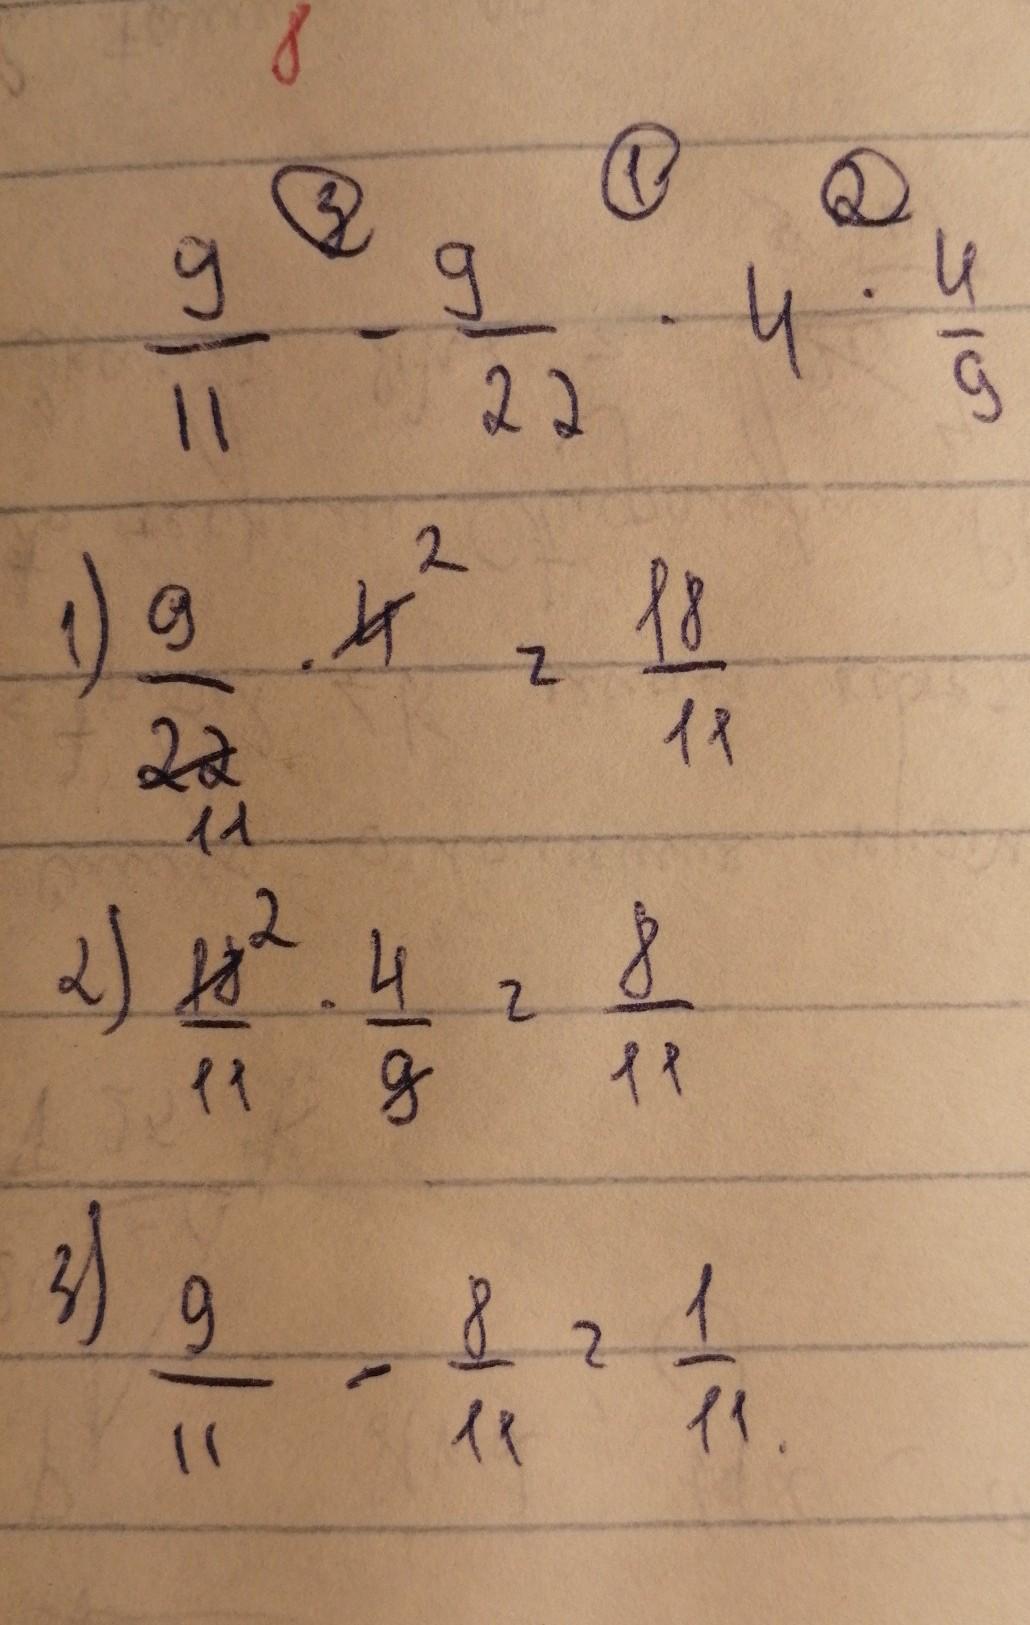 8
③ ① ②
9/11 - 9/22 · 4 · 4/9
1) 9/22 11 · 4 2 = 18/11
2) 18 2/11 · 4/9 = 8/11
3) 9/11 - 8/11 = 1/11.